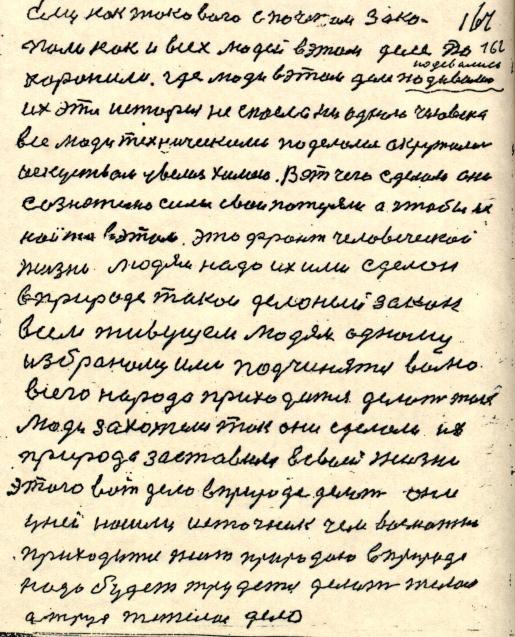 ему как такового с почетом зако- 164
пали как и всех людей в этом деле По 162
хоронили. где люди в этом деле подевались подевалис
их эта история не спасла ни одного человека
все люди техническими поделами окружили
искуством увели химию. Вот чего сделали они
сознательно силы свои потеряли а чтобы их
найти в этом. это фронт человеческой
жизни людям надо их или сделан
в природе такой делоний закон
всем живущем людям одному
избраному или подчинятя
всего народа приходится делат
люди захотели так они сделали их
природа заставила в своей жизни
этого вот дело в природе делат они
у ней нашли источник чем
приходится жит природаю в природе
надо будет трудется делат
а труд тяжелое дело